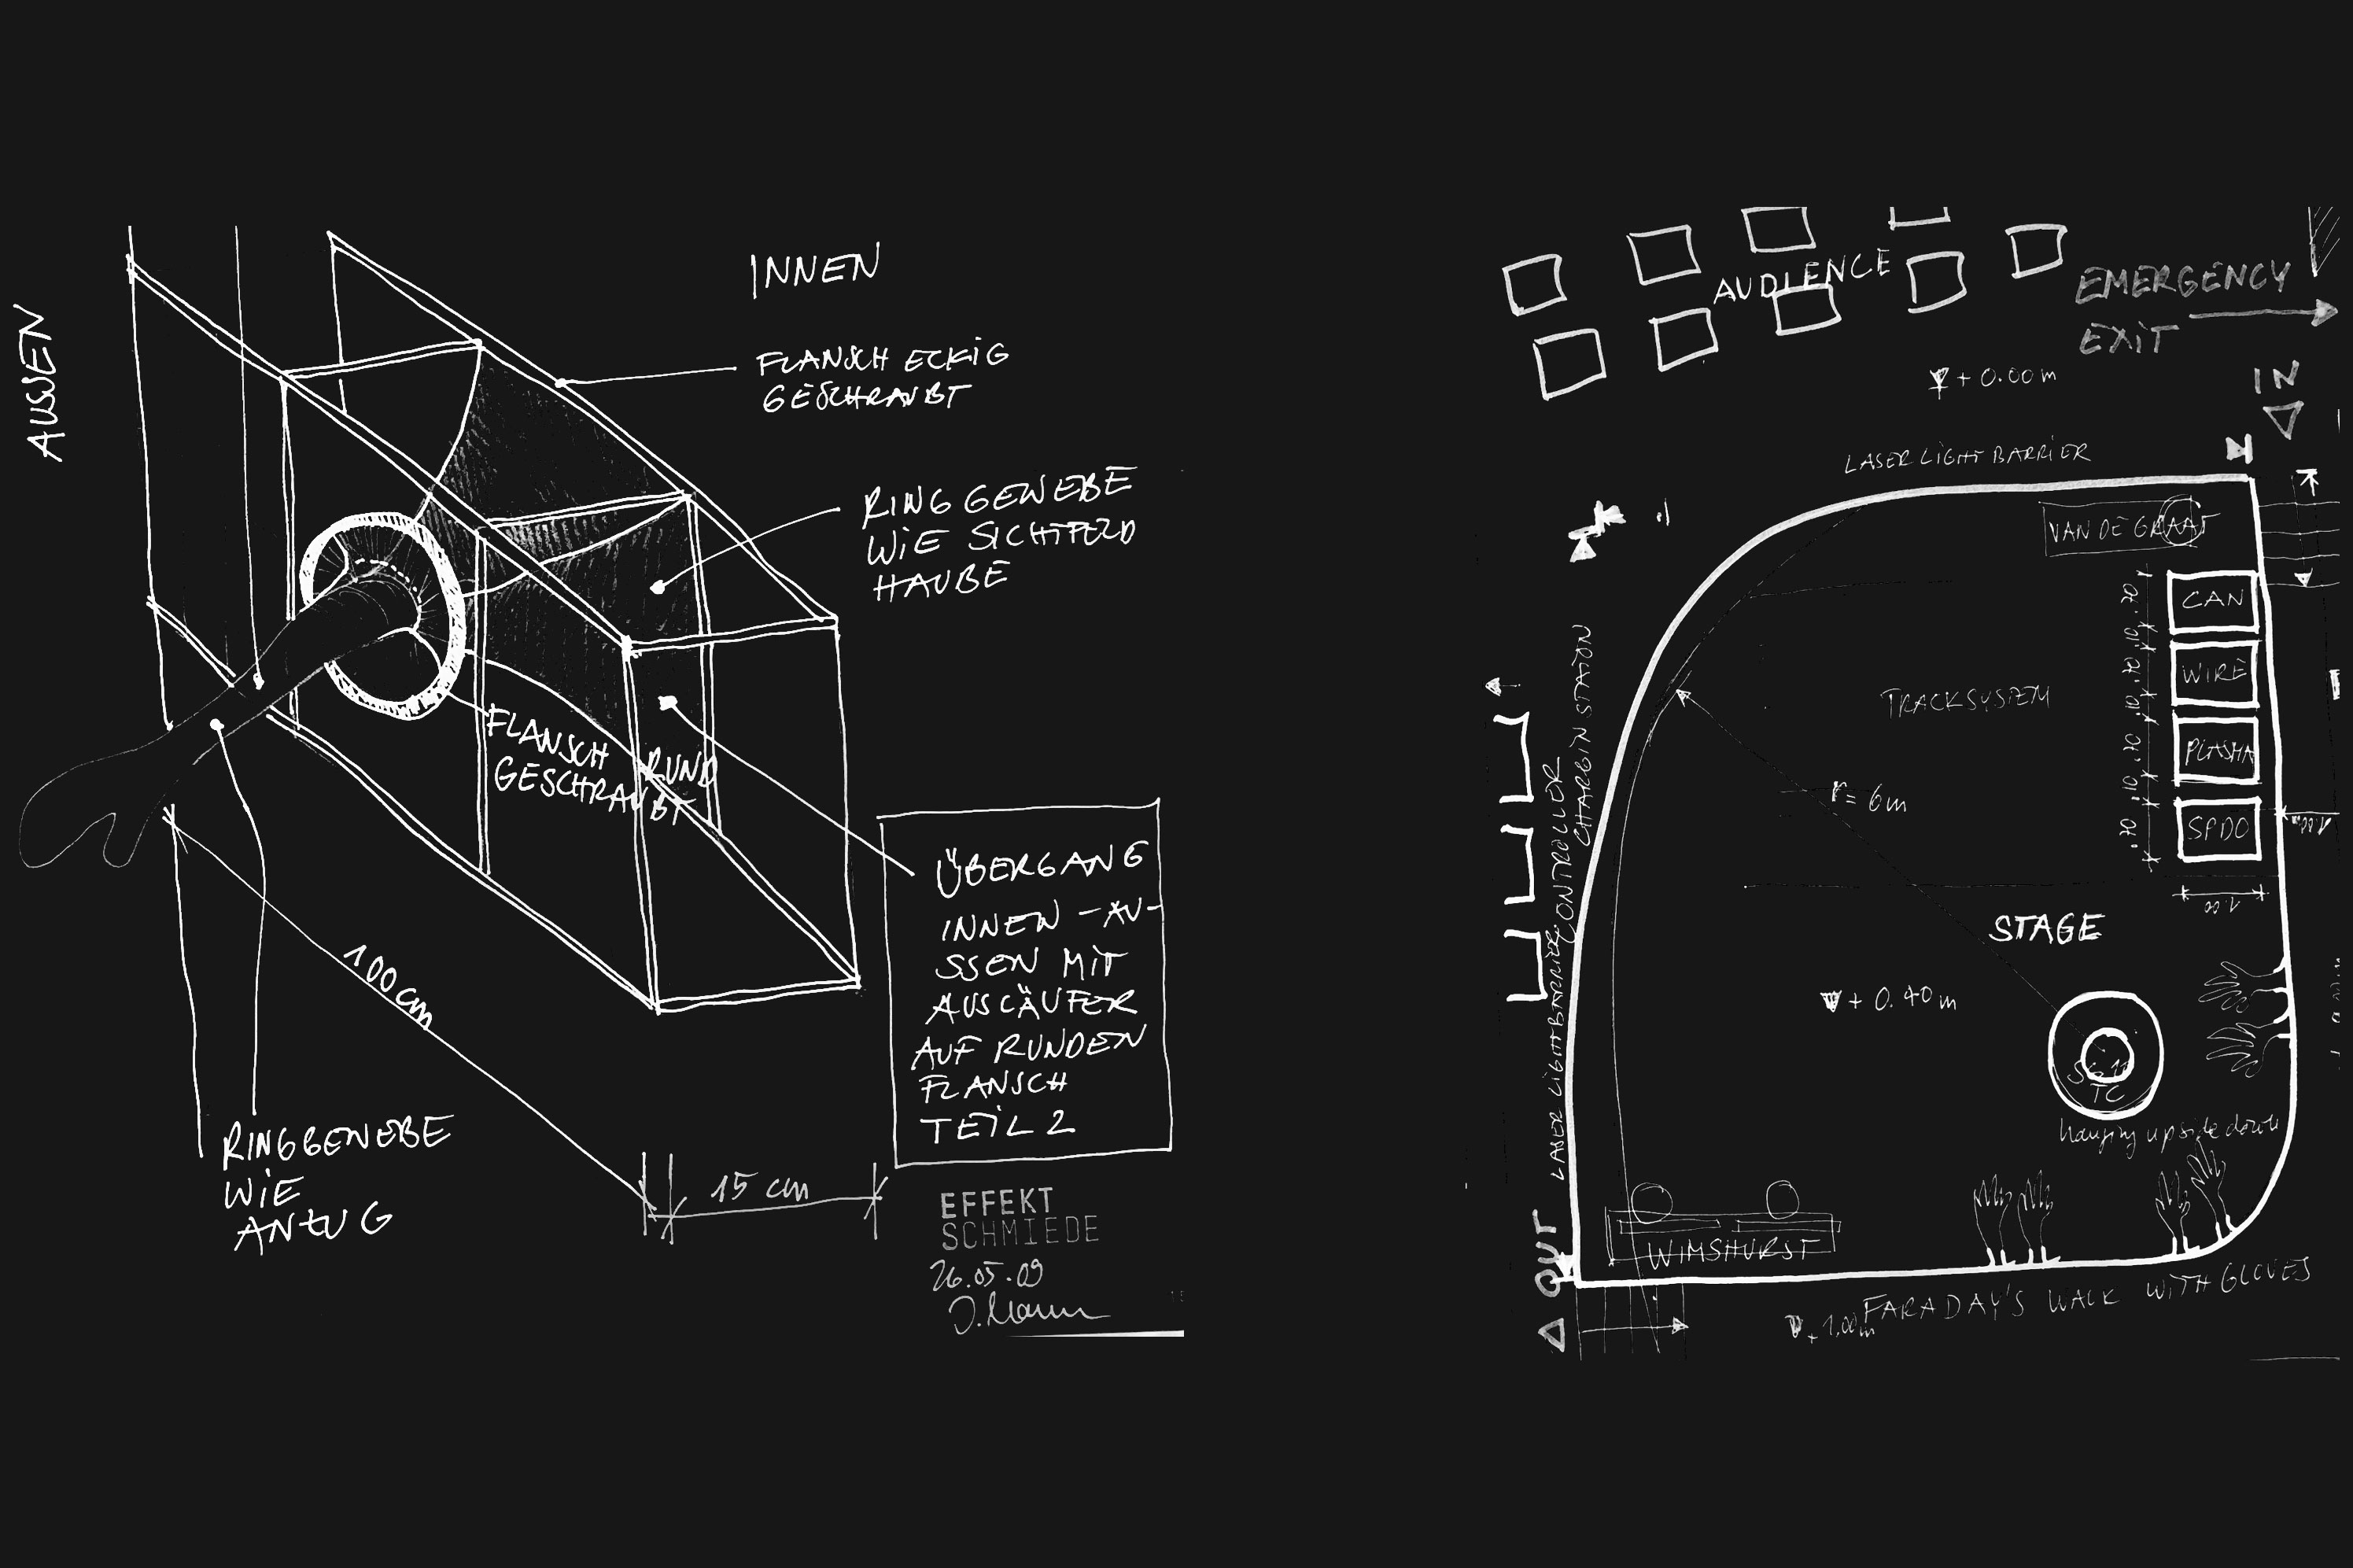 AUSSEN
INNEN
FLANSCH ECKIG
GESCHRAUBT
RINGGEWEBE
WIE SICHTFELD
HAUBE
FLANSCH RUND
GESCHRAUBT
ÜBERGANG
INNEN-AU-
SSEN MIT
AUSLÄUFER
AUF RUNDEN
FLANSCH
TEIL 2
100 cm
15 cm
RINGGEWEBE
WIE
ANZUG
EFFEKT
SCHMIEDE
26.05.09
AUDIENCE
EMERGENCY
EXIT
+ 0.00 m
IN
LASER LIGHT BARRIER
VAN DE GRAAF
CAN
WIRE
PLASMA
SPDO
.70
.10
.70
.10
.70
.10
.70
1.00
TRACKSYSTEM
r= 6m
CHARGIN STATION
CONTROLLER
LASER LIGHT BARRIER
STAGE
+ 0.40 m
TC
hanging upside down
WIMSHURST
OUT
FARADAY'S WALK WITH GLOVES
+ 1.00m